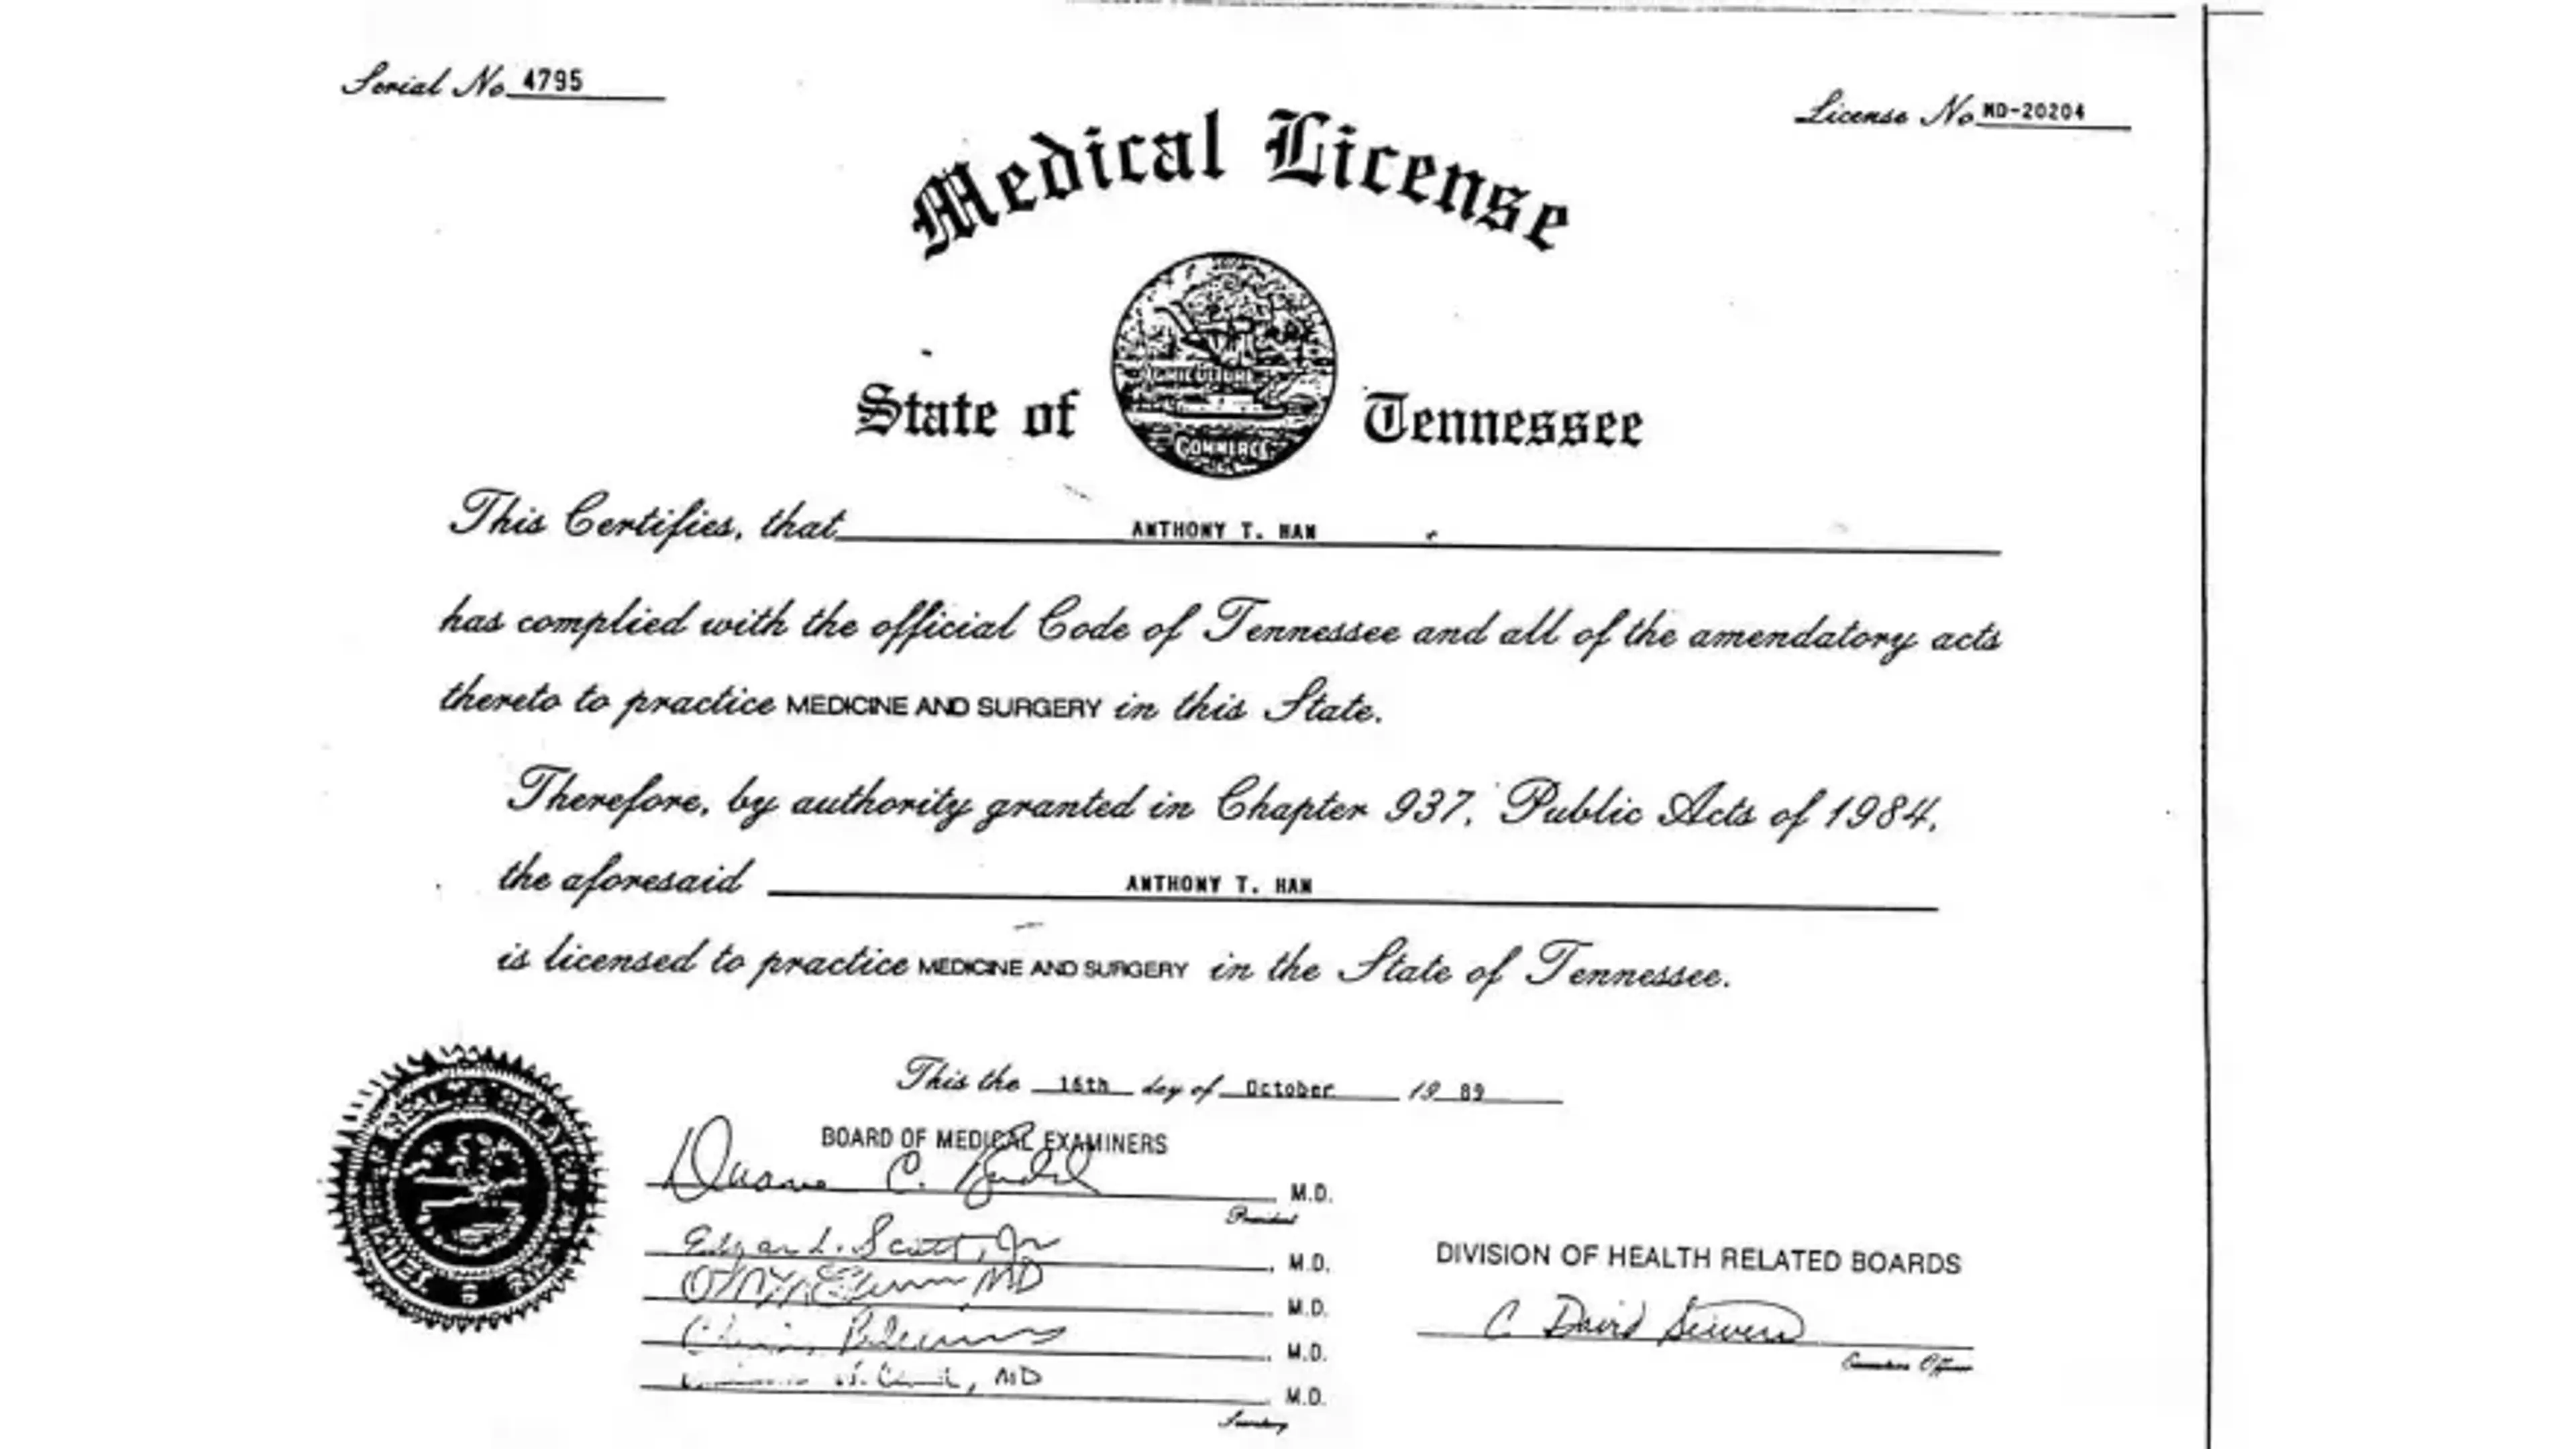 Serial No. 4795
License No. MD-20204
Medical License
State of Tennessee
AGRICULTURE
COMMERCE
This Certifies, that ANTHONY T. HAN
has complied with the official Code of Tennessee and all of the amendatory acts
thereto to practice MEDICINE AND SURGERY in this State.
Therefore, by authority granted in Chapter 937, Public Acts of 1984,
the aforesaid ANTHONY T. HAN
is licensed to practice MEDICINE AND SURGERY in the State of Tennessee.
This the 16th day of October 19 89
BOARD OF MEDICAL EXAMINERS
Duane C. M.D.
President
Edgar L. Scott, Jr. M.D.
MD M.D.
M.D.
MD M.D.
Secretary
DIVISION OF HEALTH RELATED BOARDS
C. David
Executive Officer